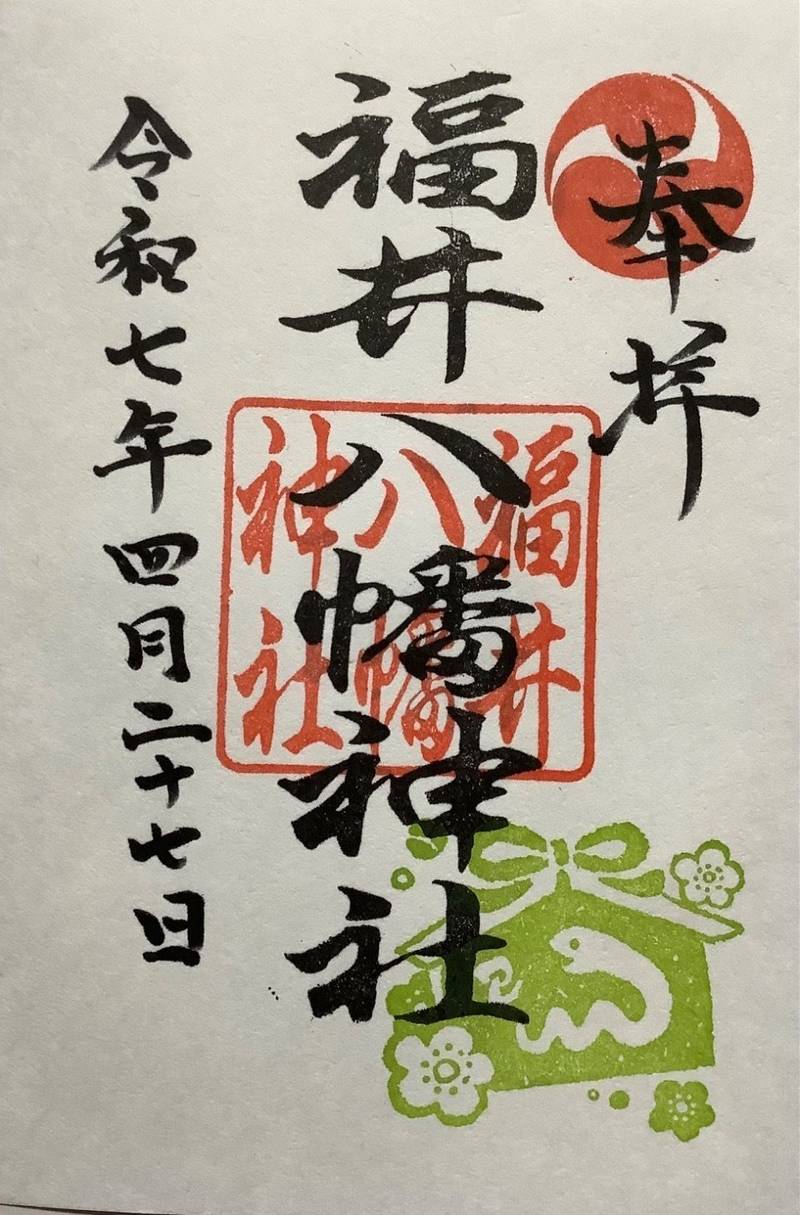 奉拝
福井八幡神社
福井
八幡
神社
令和七年四月二十七日